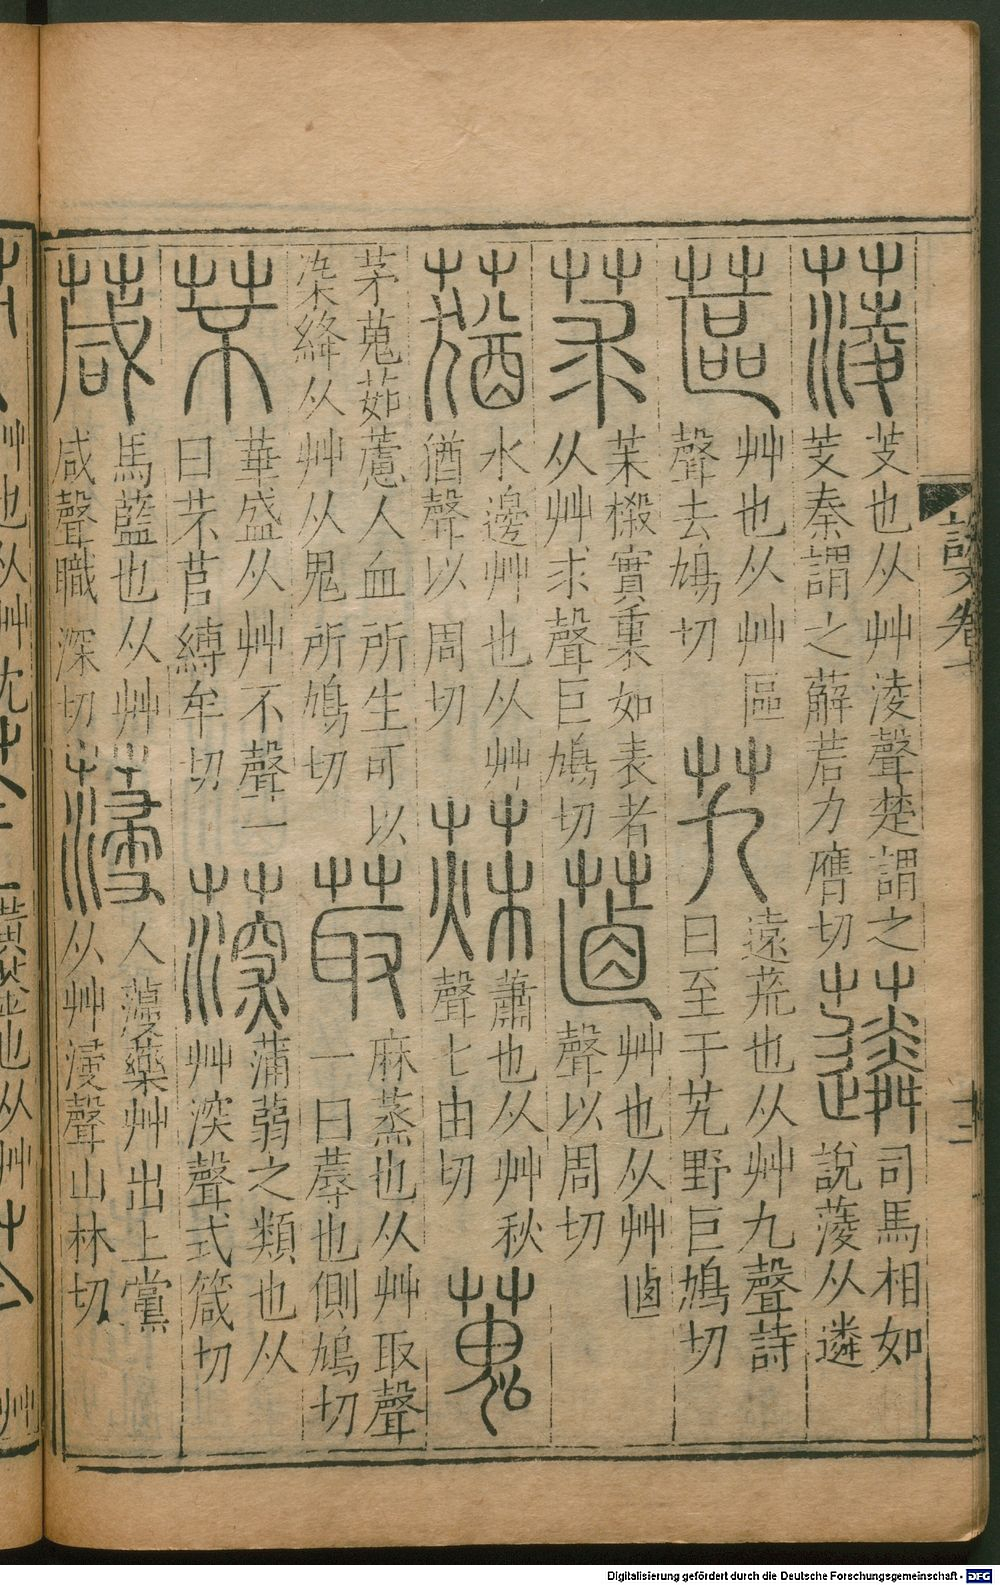 芰也从艸淩聲楚謂之
芰秦謂之薢茩力膺切
司馬相如
說蓤从遴
艸也从艸區
聲去鳩切
遠荒也从艸九聲詩
曰至于艽野巨鳩切
茮樧實裏如表者
从艸求聲巨鳩切
艸也从艸卥
聲以周切
水邊艸也从艸
猶聲以周切
蕭也从艸秋
聲七由切
茅蒐茹藘人血所生可以
染絳从艸从鬼所鳩切
麻蒸也从艸取聲
一曰蓐也側鳩切
華盛从艸不聲一
曰芣苢縛牟切
蒲蒻之類也从
艸深聲式箴切
馬藍也从艸
咸聲職深切
人薓藥艸出上黨
从艸浸聲山林切
說文卷十
十二
Digitalisierung gefördert durch die Deutsche Forschungsgemeinschaft - DFG